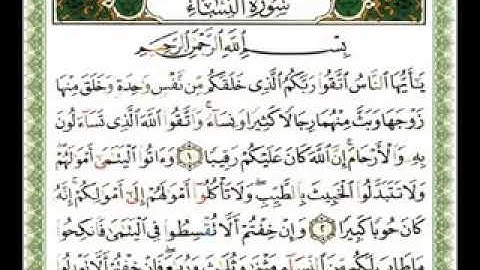 سُورَةُ النِّسَاءِ
بِسْمِ اللَّهِ الرَّحْمَٰنِ الرَّحِيمِ
يَٰٓأَيُّهَا النَّاسُ اتَّقُوا رَبَّكُمُ الَّذِي خَلَقَكُم مِّن نَّفْسٍ وَٰحِدَةٍ وَخَلَقَ مِنْهَا
زَوْجَهَا وَبَثَّ مِنْهُمَا رِجَالًا كَثِيرًا وَنِسَآءً ۚ وَاتَّقُوا اللَّهَ الَّذِي تَسَآءَلُونَ
بِهِۦ وَالْأَرْحَامَ ۚ إِنَّ اللَّهَ كَانَ عَلَيْكُمْ رَقِيبًا ١ وَءَاتُوا الْيَتَٰمَىٰٓ أَمْوَٰلَهُمْ ۖ
وَلَا تَتَبَدَّلُوا الْخَبِيثَ بِالطَّيِّبِ ۖ وَلَا تَأْكُلُوٓا أَمْوَٰلَهُمْ إِلَىٰٓ أَمْوَٰلِكُمْ ۚ إِنَّهُۥ
كَانَ حُوبًا كَبِيرًا ٢ وَإِنْ خِفْتُمْ أَلَّا تُقْسِطُوا فِي الْيَتَٰمَىٰ فَانكِحُوا
مَا طَابَ لَكُم مِّنَ النِّسَآءِ مَثْنَىٰ وَثُلَٰثَ وَرُبَٰعَ ۖ فَإِنْ خِفْتُمْ أَلَّا تَعْدِلُوا